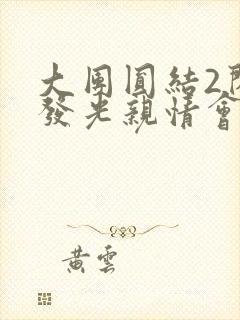 大團圓結2
發光親情會
黃雲